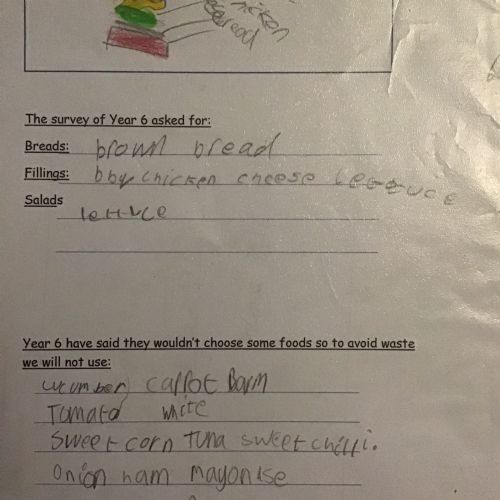 hicken
bread
The survey of Year 6 asked for:
Breads: brown bread
Fillings: bbq chicken cheese lettuce
Salads
lettuce
Year 6 have said they wouldn't choose some foods so to avoid waste
we will not use:
cucumber carrot Barm
Tomato white
Sweet corn Tuna sweet chilli.
Onion ham mayonise